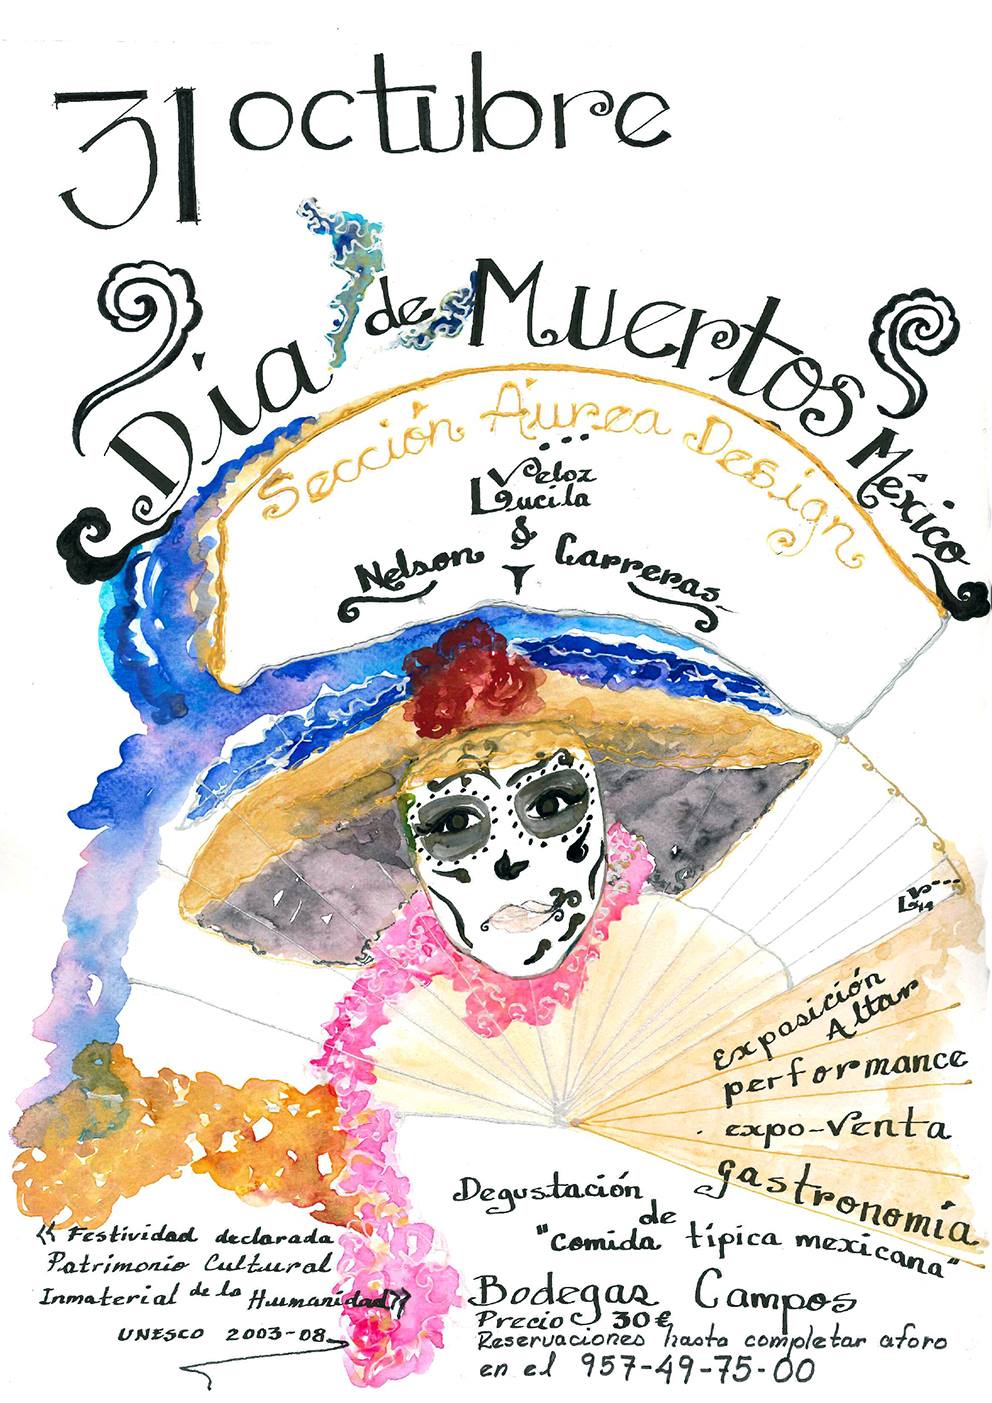 31 octubre
Día de Muertos México
Sección Áurea Design
Veloz
Lucila
&
Nelson Carreras
LV 14
Exposición
Altar
performance
expo-venta
gastronomía
Degustación
de
"comida típica mexicana"
Bodegas Campos
Precio 30€
Reservaciones hasta completar aforo
en el 957-49-75-00
《 Festividad declarada
Patrimonio Cultural
Inmaterial de la Humanidad》
UNESCO 2003-08